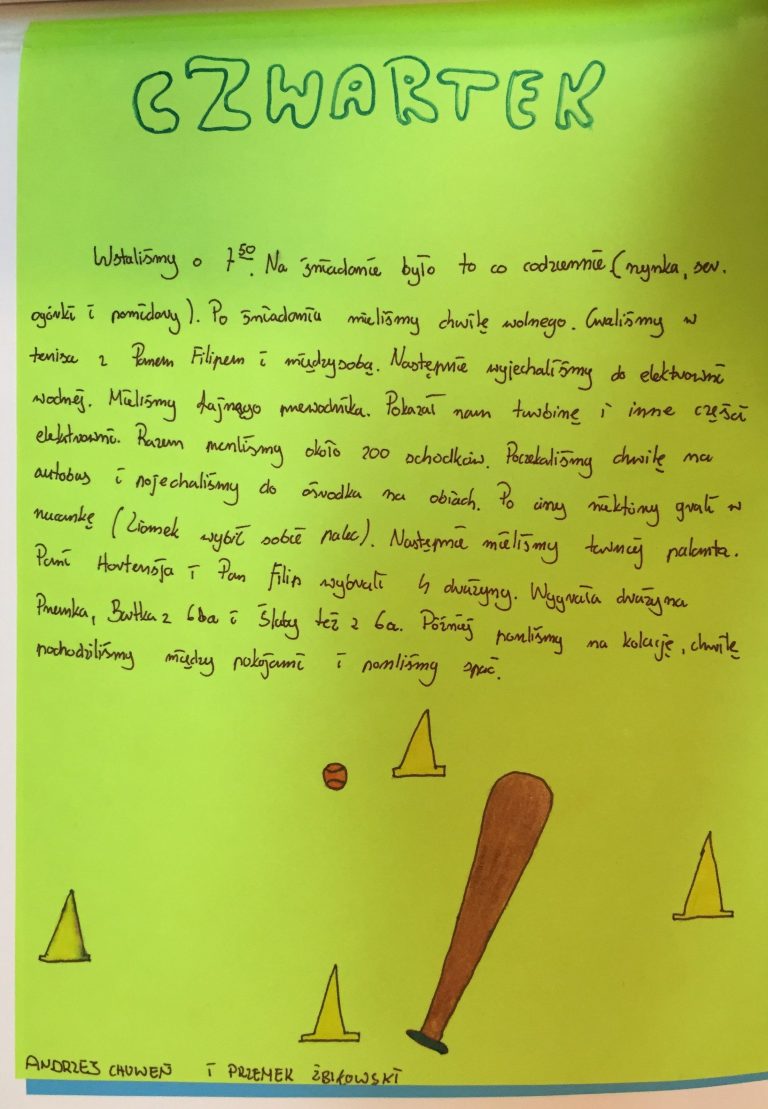 CZWARTEK
Wstaliśmy o 7⁵⁰. Na śniadanie było to co codziennie (szynka, ser,
ogórki i pomidory). Po śniadaniu mieliśmy chwilę wolnego. Graliśmy w
tenisa z Panem Filipem i międzysobą. Następnie wyjechaliśmy do elektrowni
wodnej. Mieliśmy fajnego przewodnika. Pokazał nam turbinę i inne części
elektrowni. Razem przeszliśmy około 200 schodków. Poczekaliśmy chwilę na
autobus i pojechaliśmy do ośrodka na obiad. Po ciszy niektórzy grali w
(Ziomek wybił sobie palec). Następnie mieliśmy turniej palanta.
Pani Hortensja i Pan Filip wybrali 4 drużyny. Wygrała drużyna
Przemka, Bartka z 6ba i Śruby też z 6a. Później poszliśmy na kolację, chwilę
pochodziliśmy między pokojami i poszliśmy spać.
ANDRZEJ CHUWEŃ I PRZEMEK ŻBIKOWSKI